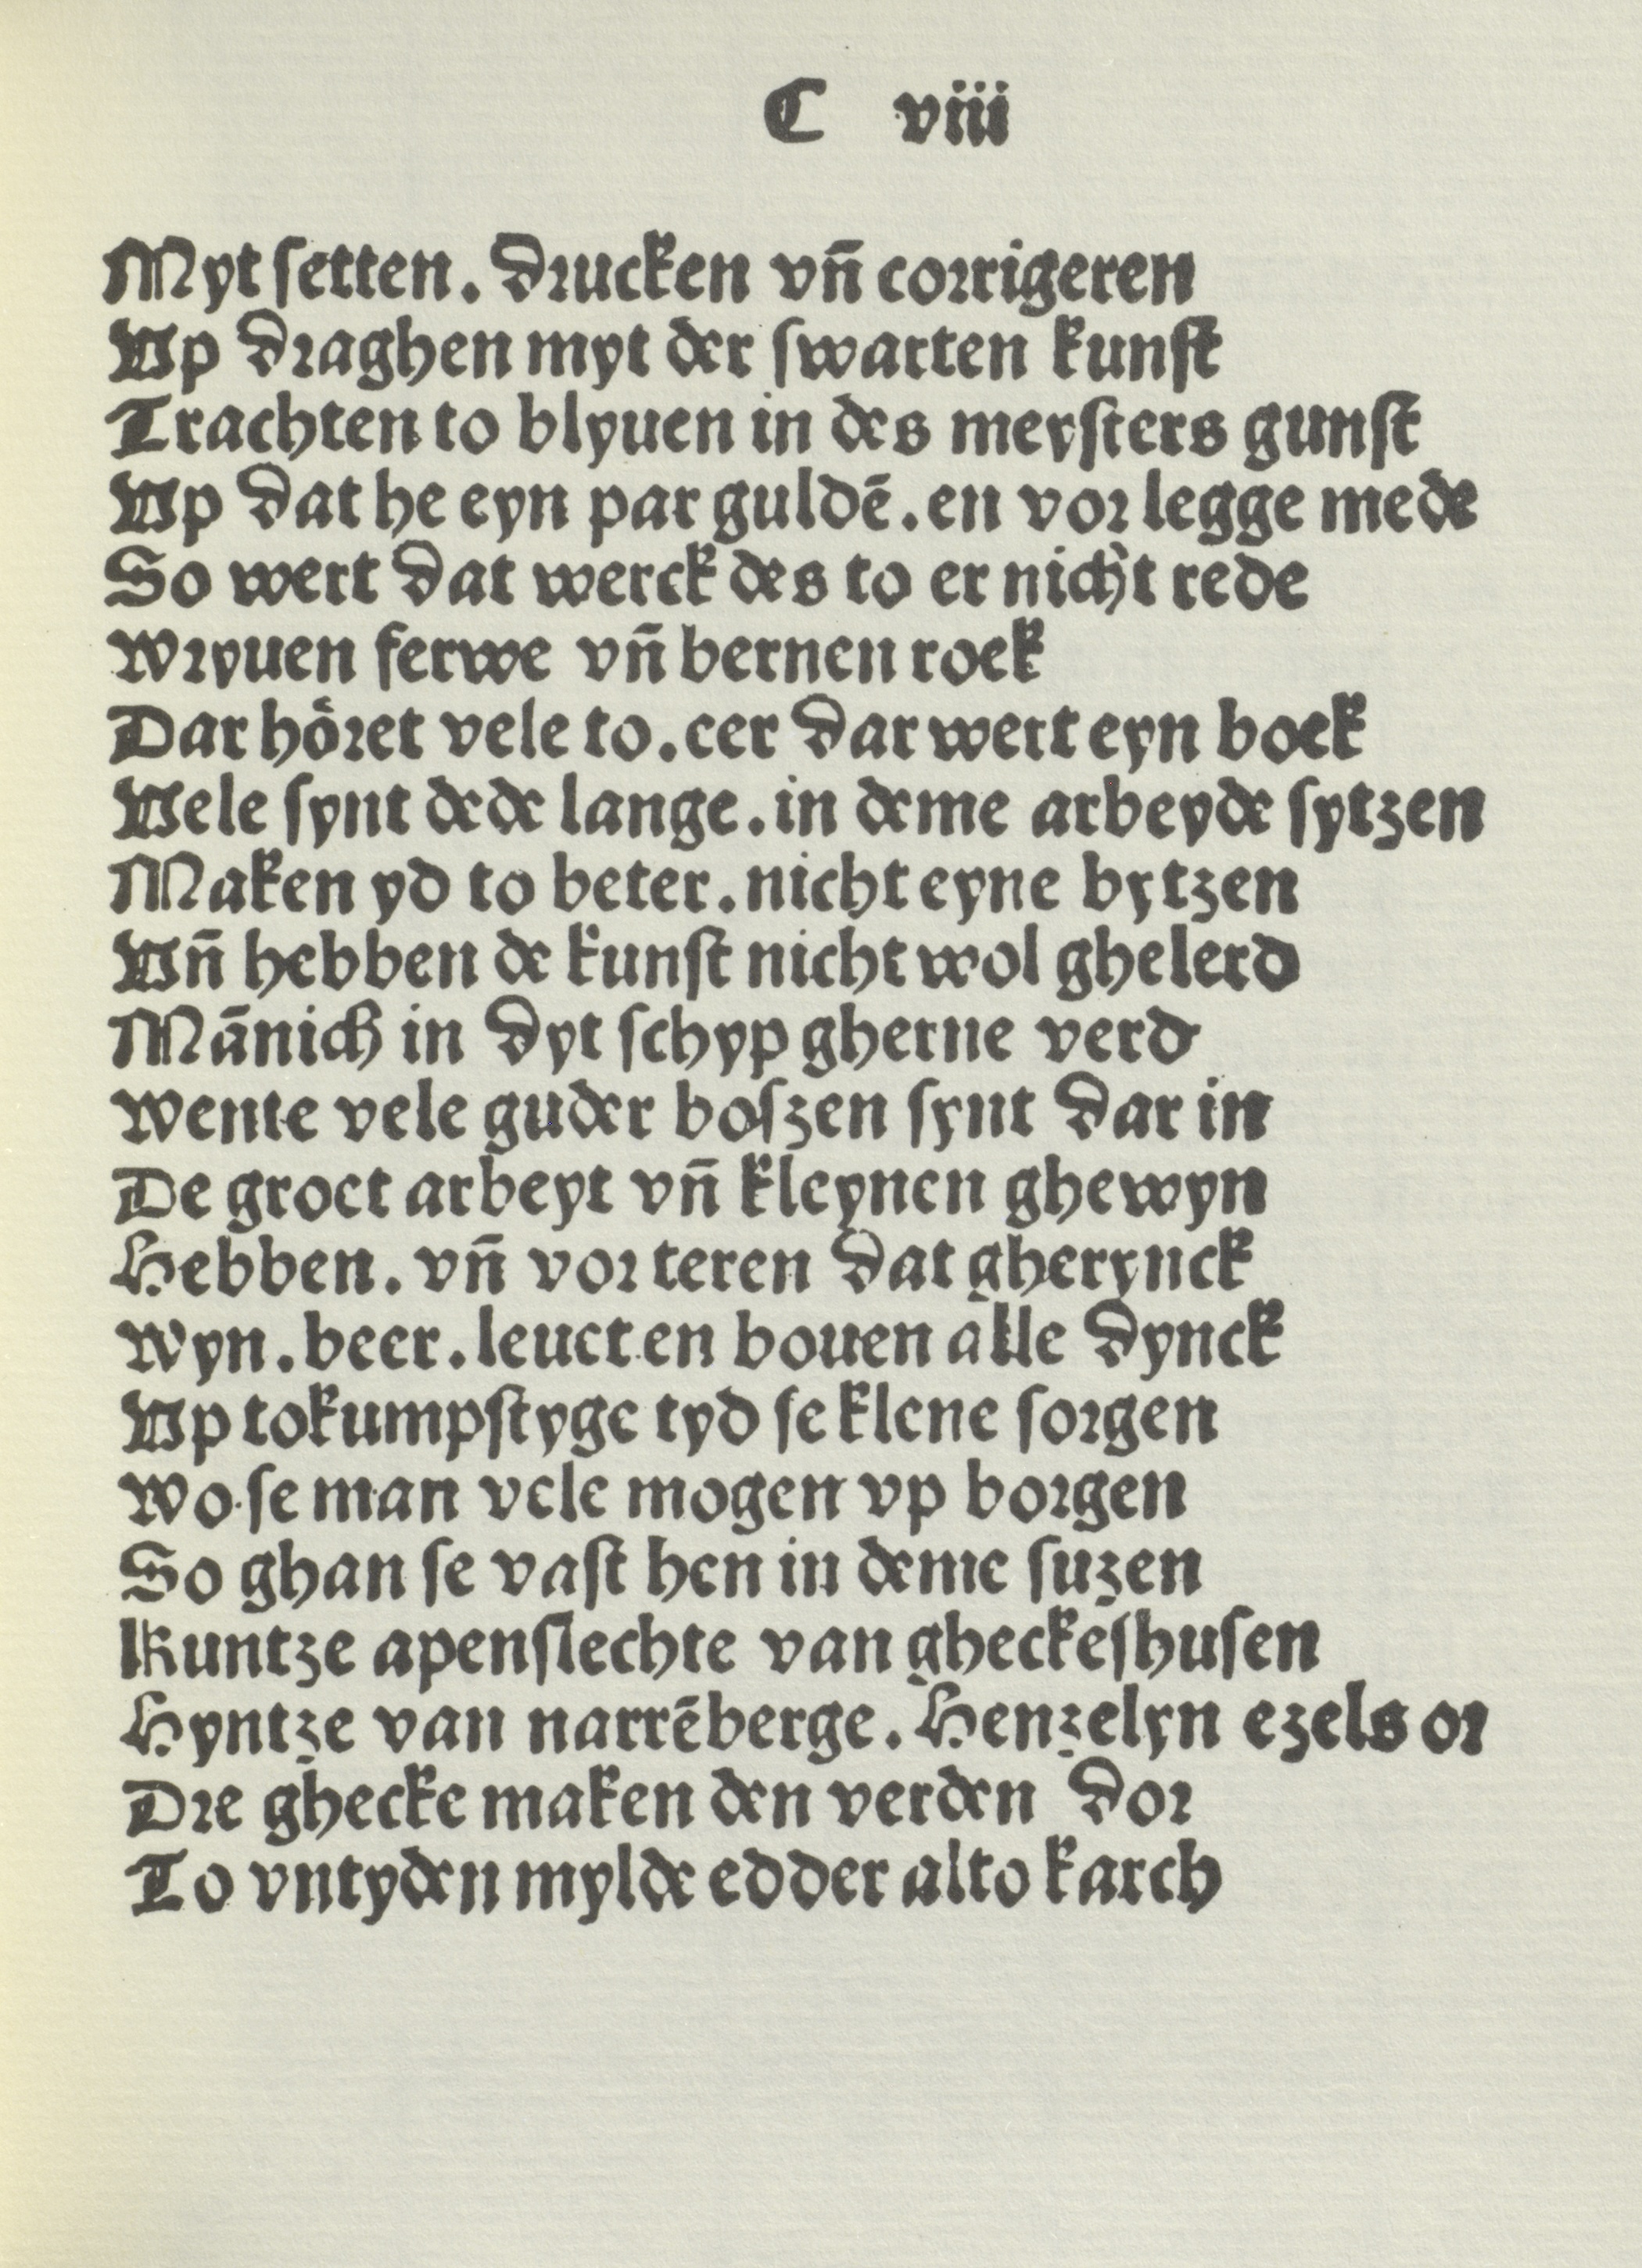 C viii
Myt ſetten. drucken vn̄ corrigeren
Vp draghen myt der ſwarten kunſt
Trachten to blyuen in des meyſters gunſt
Vp dat he eyn par guldē. en vor legge mede
So wert dat werck des to er nicht rede
Wryuen ferwe vn̄ bernen roek
Dar hoͤret vele to. eer dar wert eyn boek
Vele ſynt dede lange. in deme arbeyde ſytzen
Maken yd to beter. nicht eyne bytzen
Vn̄ hebben de kunſt nicht wol ghelerd
Mānich in dyt ſchyp gherne verd
Wente vele guder boſzen ſynt dar in
De groet arbeyt vn̄ kleynen ghewyn
Hebben. vn̄ vor teren dat gherynck
Wyn. beer. leuet en bouen alle dynck
Vp tokumpſtyge tyd ſe klene ſorgen
Wo ſe man vele mogen vp borgen
So ghan ſe vaſt hen in deme ſuzen
Kuntze apenſlechte van gheckeſhuſen
Hyntze van narrēberge. Henzelyn ezels or
Dre ghecke maken den verden dor
To vntyden mylde edder alto karch